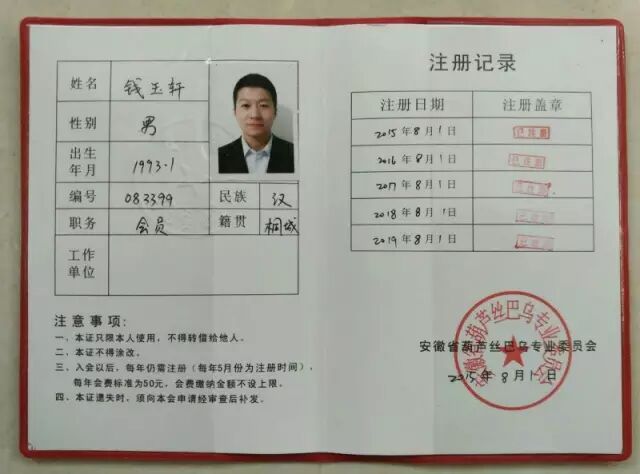 姓名 钱玉轩
性别 男
出生年月 1993.1
编号 083399 民族 汉
职务 会员 籍贯 桐城
工作单位
注意事项：
一、本证只限本人使用，不得转借给他人。
二、本证不得涂改。
三、入会以后，每年仍需注册（每年5月份为注册时间），
每年会费标准为50元，会费缴纳金额不设上限。
四、本证遗失时，须向本会申请经审查后补发。
注册记录
注册日期 注册盖章
2015年8月1日 已注册
2016年8月1日 已注册
2017年8月1日 已注册
2018年8月1日 已注册
2019年8月1日 已注册
安徽省葫芦丝巴乌专业委员会
安徽省葫芦丝巴乌专业委员会
2015年8月1日